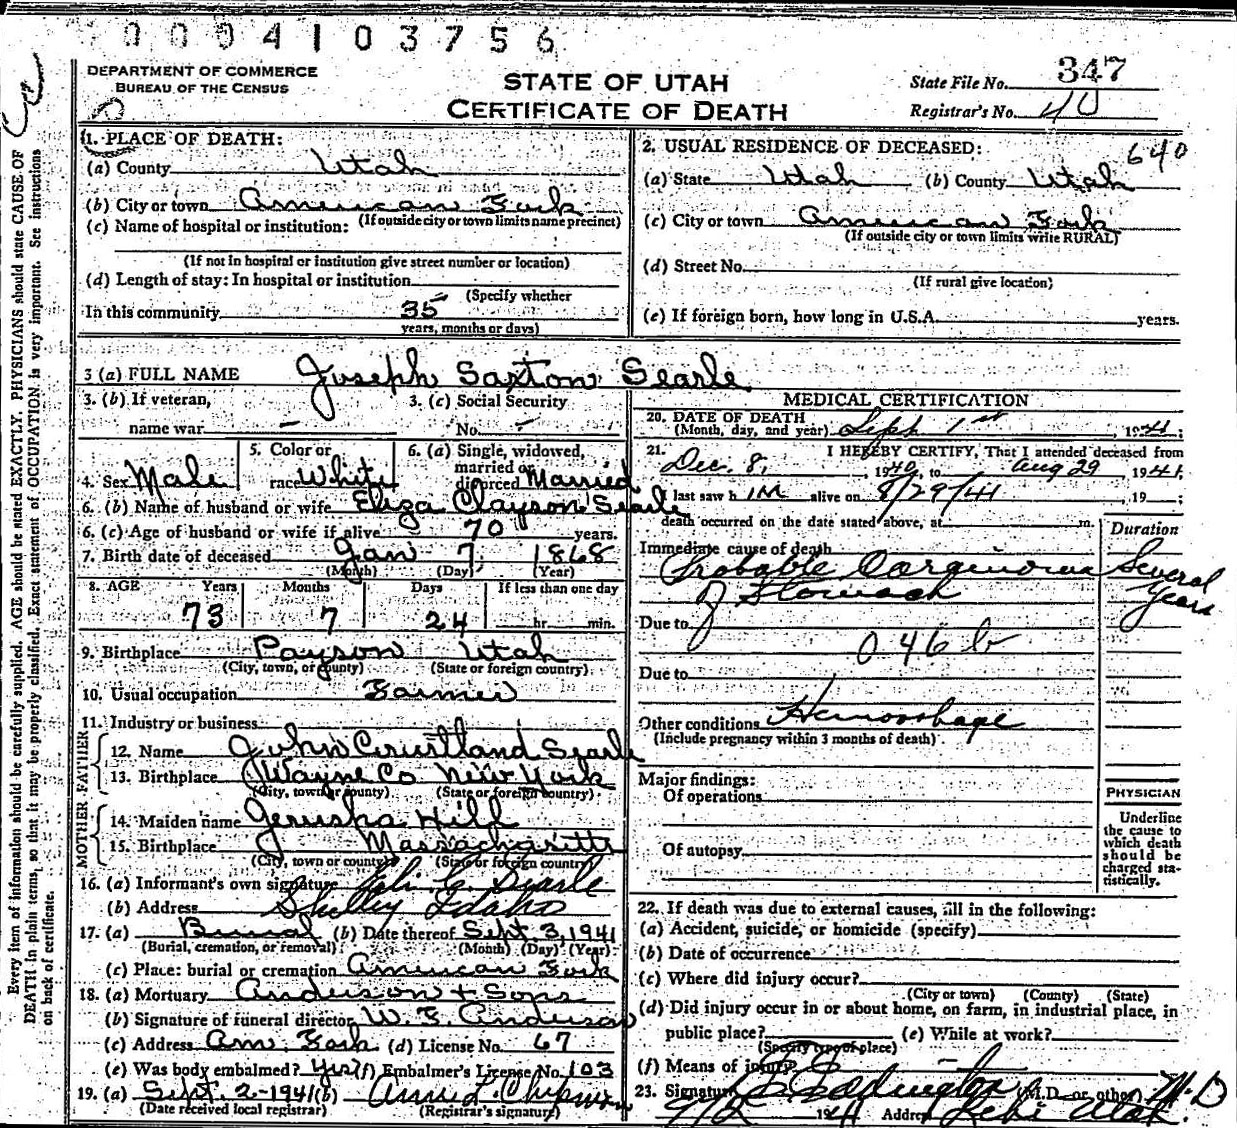 0004103756
DEPARTMENT OF COMMERCE
BUREAU OF THE CENSUS
STATE OF UTAH
CERTIFICATE OF DEATH
State File No. 347
Registrar's No. 40
1. PLACE OF DEATH:
(a) County Utah
(b) City or town American Fork
(If outside city or town limits name precinct)
(c) Name of hospital or institution:
(If not in hospital or institution give street number or location)
(d) Length of stay: In hospital or institution
(Specify whether
In this community 35
years, months or days)
2. USUAL RESIDENCE OF DECEASED: 640
(a) State Utah (b) County Utah
(c) City or town American Fork
(If outside city or town limits write RURAL)
(d) Street No.
(If rural give location)
(e) If foreign born, how long in U.S.A. years.
3 (a) FULL NAME Joseph Saxton Searle
3. (b) If veteran,
name war –
3. (c) Social Security
No. –
4. Sex Male
5. Color or
race White
6. (a) Single, widowed,
married or
divorced Married
6. (b) Name of husband or wife Eliza Clayson Searle
6. (c) Age of husband or wife if alive 70 years.
7. Birth date of deceased Jan 7 1868
(Month) (Day) (Year)
8. AGE Years Months Days If less than one day
73 7 24 hr. min.
9. Birthplace Payson Utah
(City, town, or county) (State or foreign country)
10. Usual occupation Farmer
11. Industry or business
FATHER
12. Name John Courtland Searle
13. Birthplace Wayne Co New York
(City, town or county) (State or foreign country)
MOTHER
14. Maiden name Jerusha Hill
15. Birthplace Massachusetts
(City, town or county) (State or foreign country)
16. (a) Informant's own signature John C. Searle
(b) Address Shelley Idaho
17. (a) Burial (b) Date thereof Sept. 3, 1941
(Burial, cremation, or removal) (Month) (Day) (Year)
(c) Place: burial or cremation American Fork
18. (a) Mortuary Anderson & Sons
(b) Signature of funeral director W. F. Anderson
(c) Address Am. Fork (d) License No. 67
(e) Was body embalmed? Yes (f) Embalmer's License No. 103
19. (a) Sept. 2-1941 (b) L. Chipman
(Date received local registrar) (Registrar's signature)
MEDICAL CERTIFICATION
20. DATE OF DEATH
(Month, day, and year) Sept 1st, 1941;
21. I HEREBY CERTIFY, That I attended deceased from
Dec. 8, 1940, to Aug 29 1941;
I last saw h im alive on 8/29/41 19 ;
death occurred on the date stated above, at m.
Duration
Immediate cause of death
Probable Carcinoma Several
of Stomach Years
Due to
046 b
Due to
Other conditions Hemorrhage
(Include pregnancy within 3 months of death)
Major findings:
Of operations
Of autopsy
PHYSICIAN
Underline
the cause to
which death
should be
charged sta-
tistically.
22. If death was due to external causes, fill in the following:
(a) Accident, suicide, or homicide (specify)
(b) Date of occurrence
(c) Where did injury occur?
(City or town) (County) (State)
(d) Did injury occur in or about home, on farm, in industrial place, in
public place? (e) While at work?
(Specify type of place)
(f) Means of injury
23. Signature Eddington (M.D. or other) M.D
9/2 1941 Address Lehi Utah.
Every item of information should be carefully supplied. AGE should be stated EXACTLY. PHYSICIANS should state CAUSE OF
DEATH in plain terms, so that it may be properly classified. Exact statement of OCCUPATION is very important. See instructions
on back of certificate.